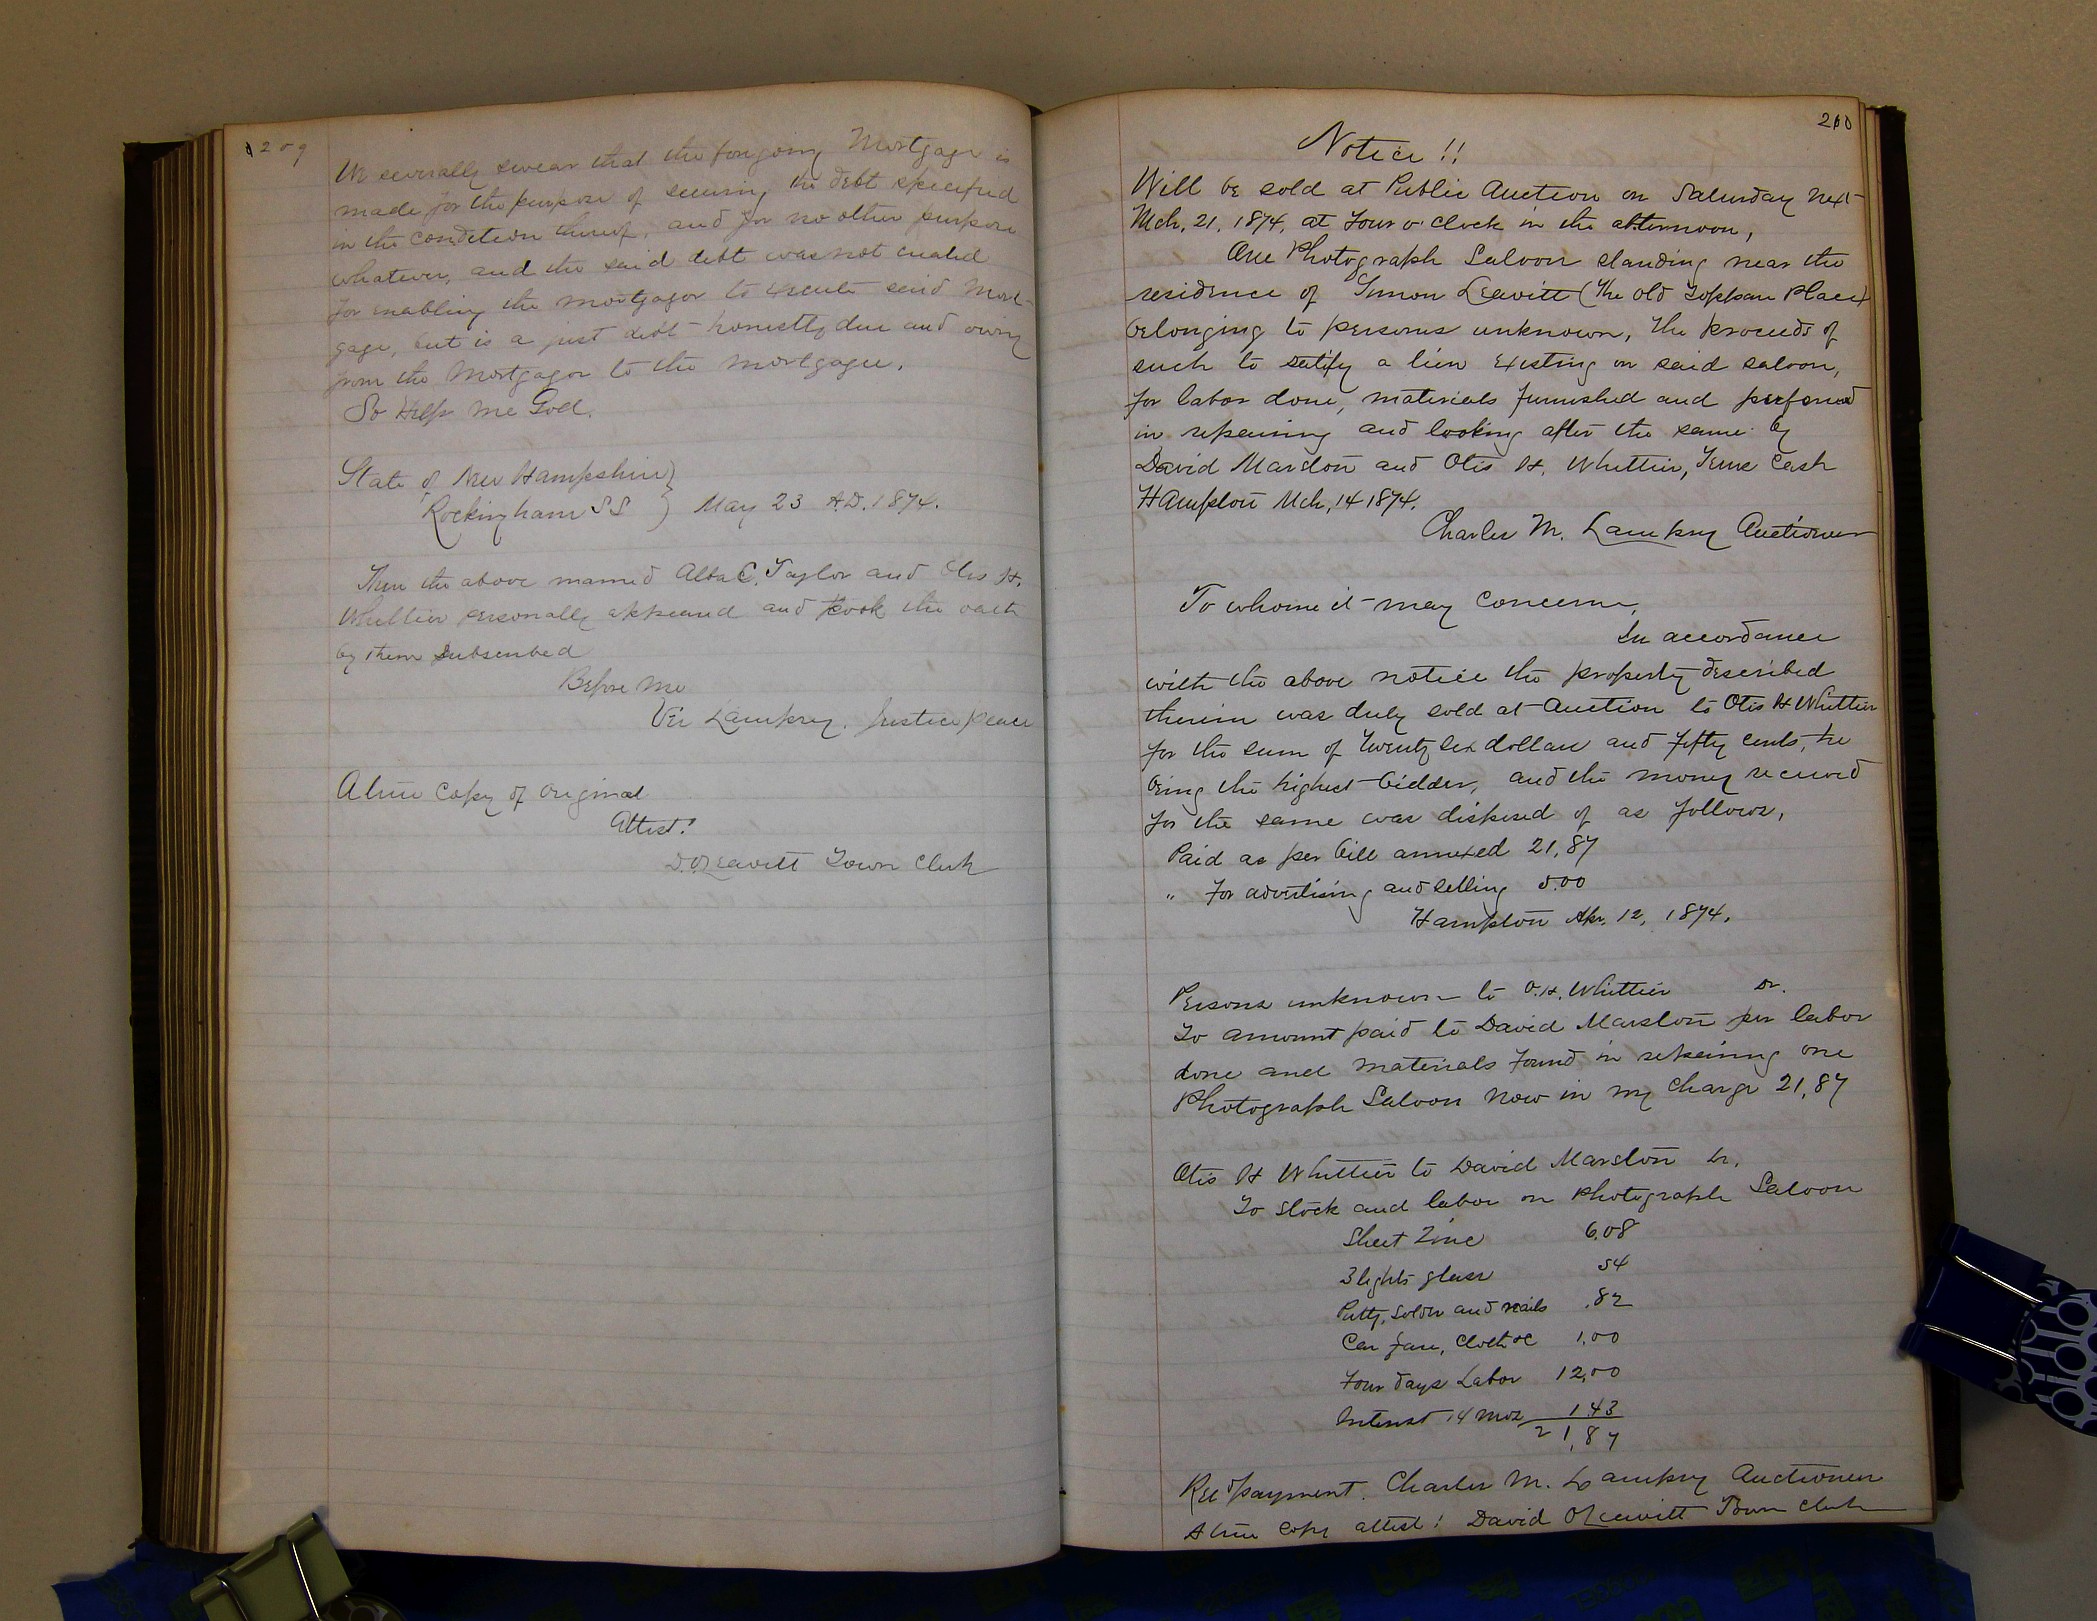 209
We severally swear that the foregoing Mortgage is
made for the purpose of securing the debt specified
in the condition thereof, and for no other purpose
whatever, and the said debt was not created
for enabling the mortgagor to execute said Mort-
gage, but is a just debt honestly due and owing
from the Mortgagor to the mortgagee.
So Help me God.
State of New Hampshire }
Rockingham SS } May 23 A.D. 1874.
Then the above named Alba C. Taylor and Otis H.
Whittier personally appeared and took the oath
by them Subscribed
Before Me
Uri Lamprey. Justice Peace
A true Copy of original
Attest!
D. O. Leavitt Town Clerk
210
Notice !!
Will be sold at Public Auction on Saturday next
Mch, 21, 1874, at Four o'clock in the afternoon,
One Photograph Saloon standing near the
residence of Simon Leavitt (The old Toppan Place)
belonging to persons unknown, The proceeds of
such to satify a lien Existing on said saloon,
for labor done, materials furnished and perfomed
in repairing and looking after the same by
David Marston and Otis H. Whittier, Terms Cash
Hampton Mch, 14 1874.
Charles M. Lamprey Auctioneer
To whome it may Concern,
In accordance
with the above notice the property described
therein was duly sold at Auction to Otis H Whittier
for the sum of Twenty six dollars and fifty cents, he
being the highest bidder, and the money received
for the same was disposed of as follows,
Paid as per bill annexed 21,87
" For advertising and selling 5.00
Hampton Apr. 12, 1874.
Persons unknown to O. H. Whittier Dr.
To amount paid to David Marston per labor
done and materials Found in repairing one
Photograph Saloon Now in my charge 21,87
Otis H Whittier to David Marston Dr.
To stock and labor on Photograph Saloon
Sheet Zinc 6,08
3 lights glass 54
Putty, Solder and nails .82
Car fare, Cloth &c 1,00
Four days Labor 12,00
Interest 14 mos 1.43
21,87
Recd payment. Charles M. Lamprey Auctioneer
A true copy attest! David O Leavitt Town Clerk